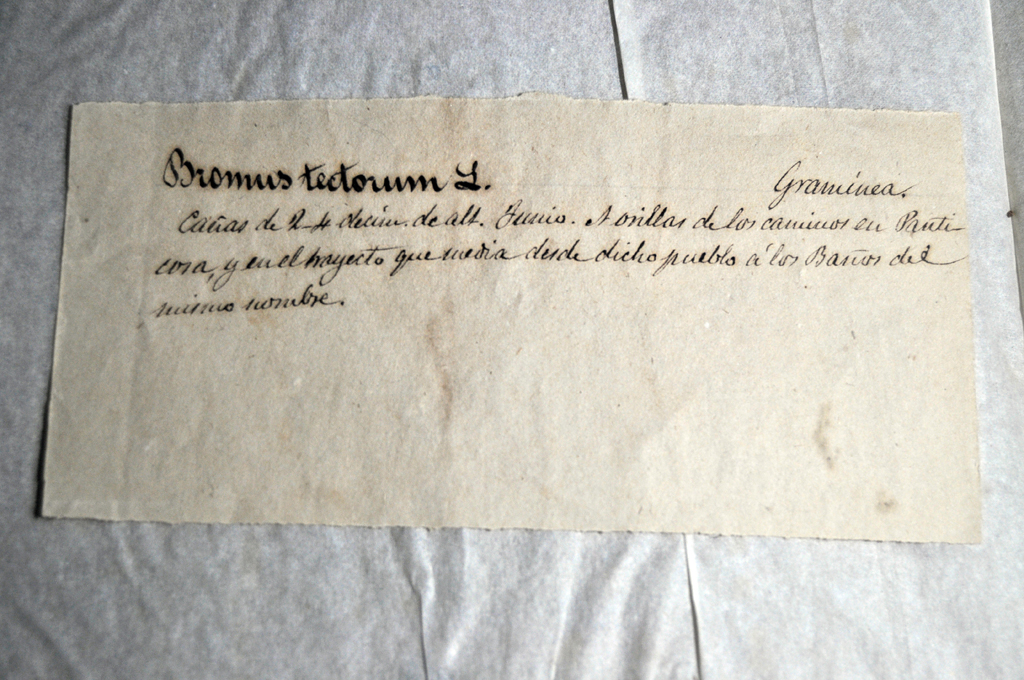 Bromus tectorum L. Gramínea.
Cañas de 2-4 decím. de alt. Junio. A orillas de los caminos en Panti
cosa, y en el trayecto que media desde dicho pueblo á los Baños del
mismo nombre.